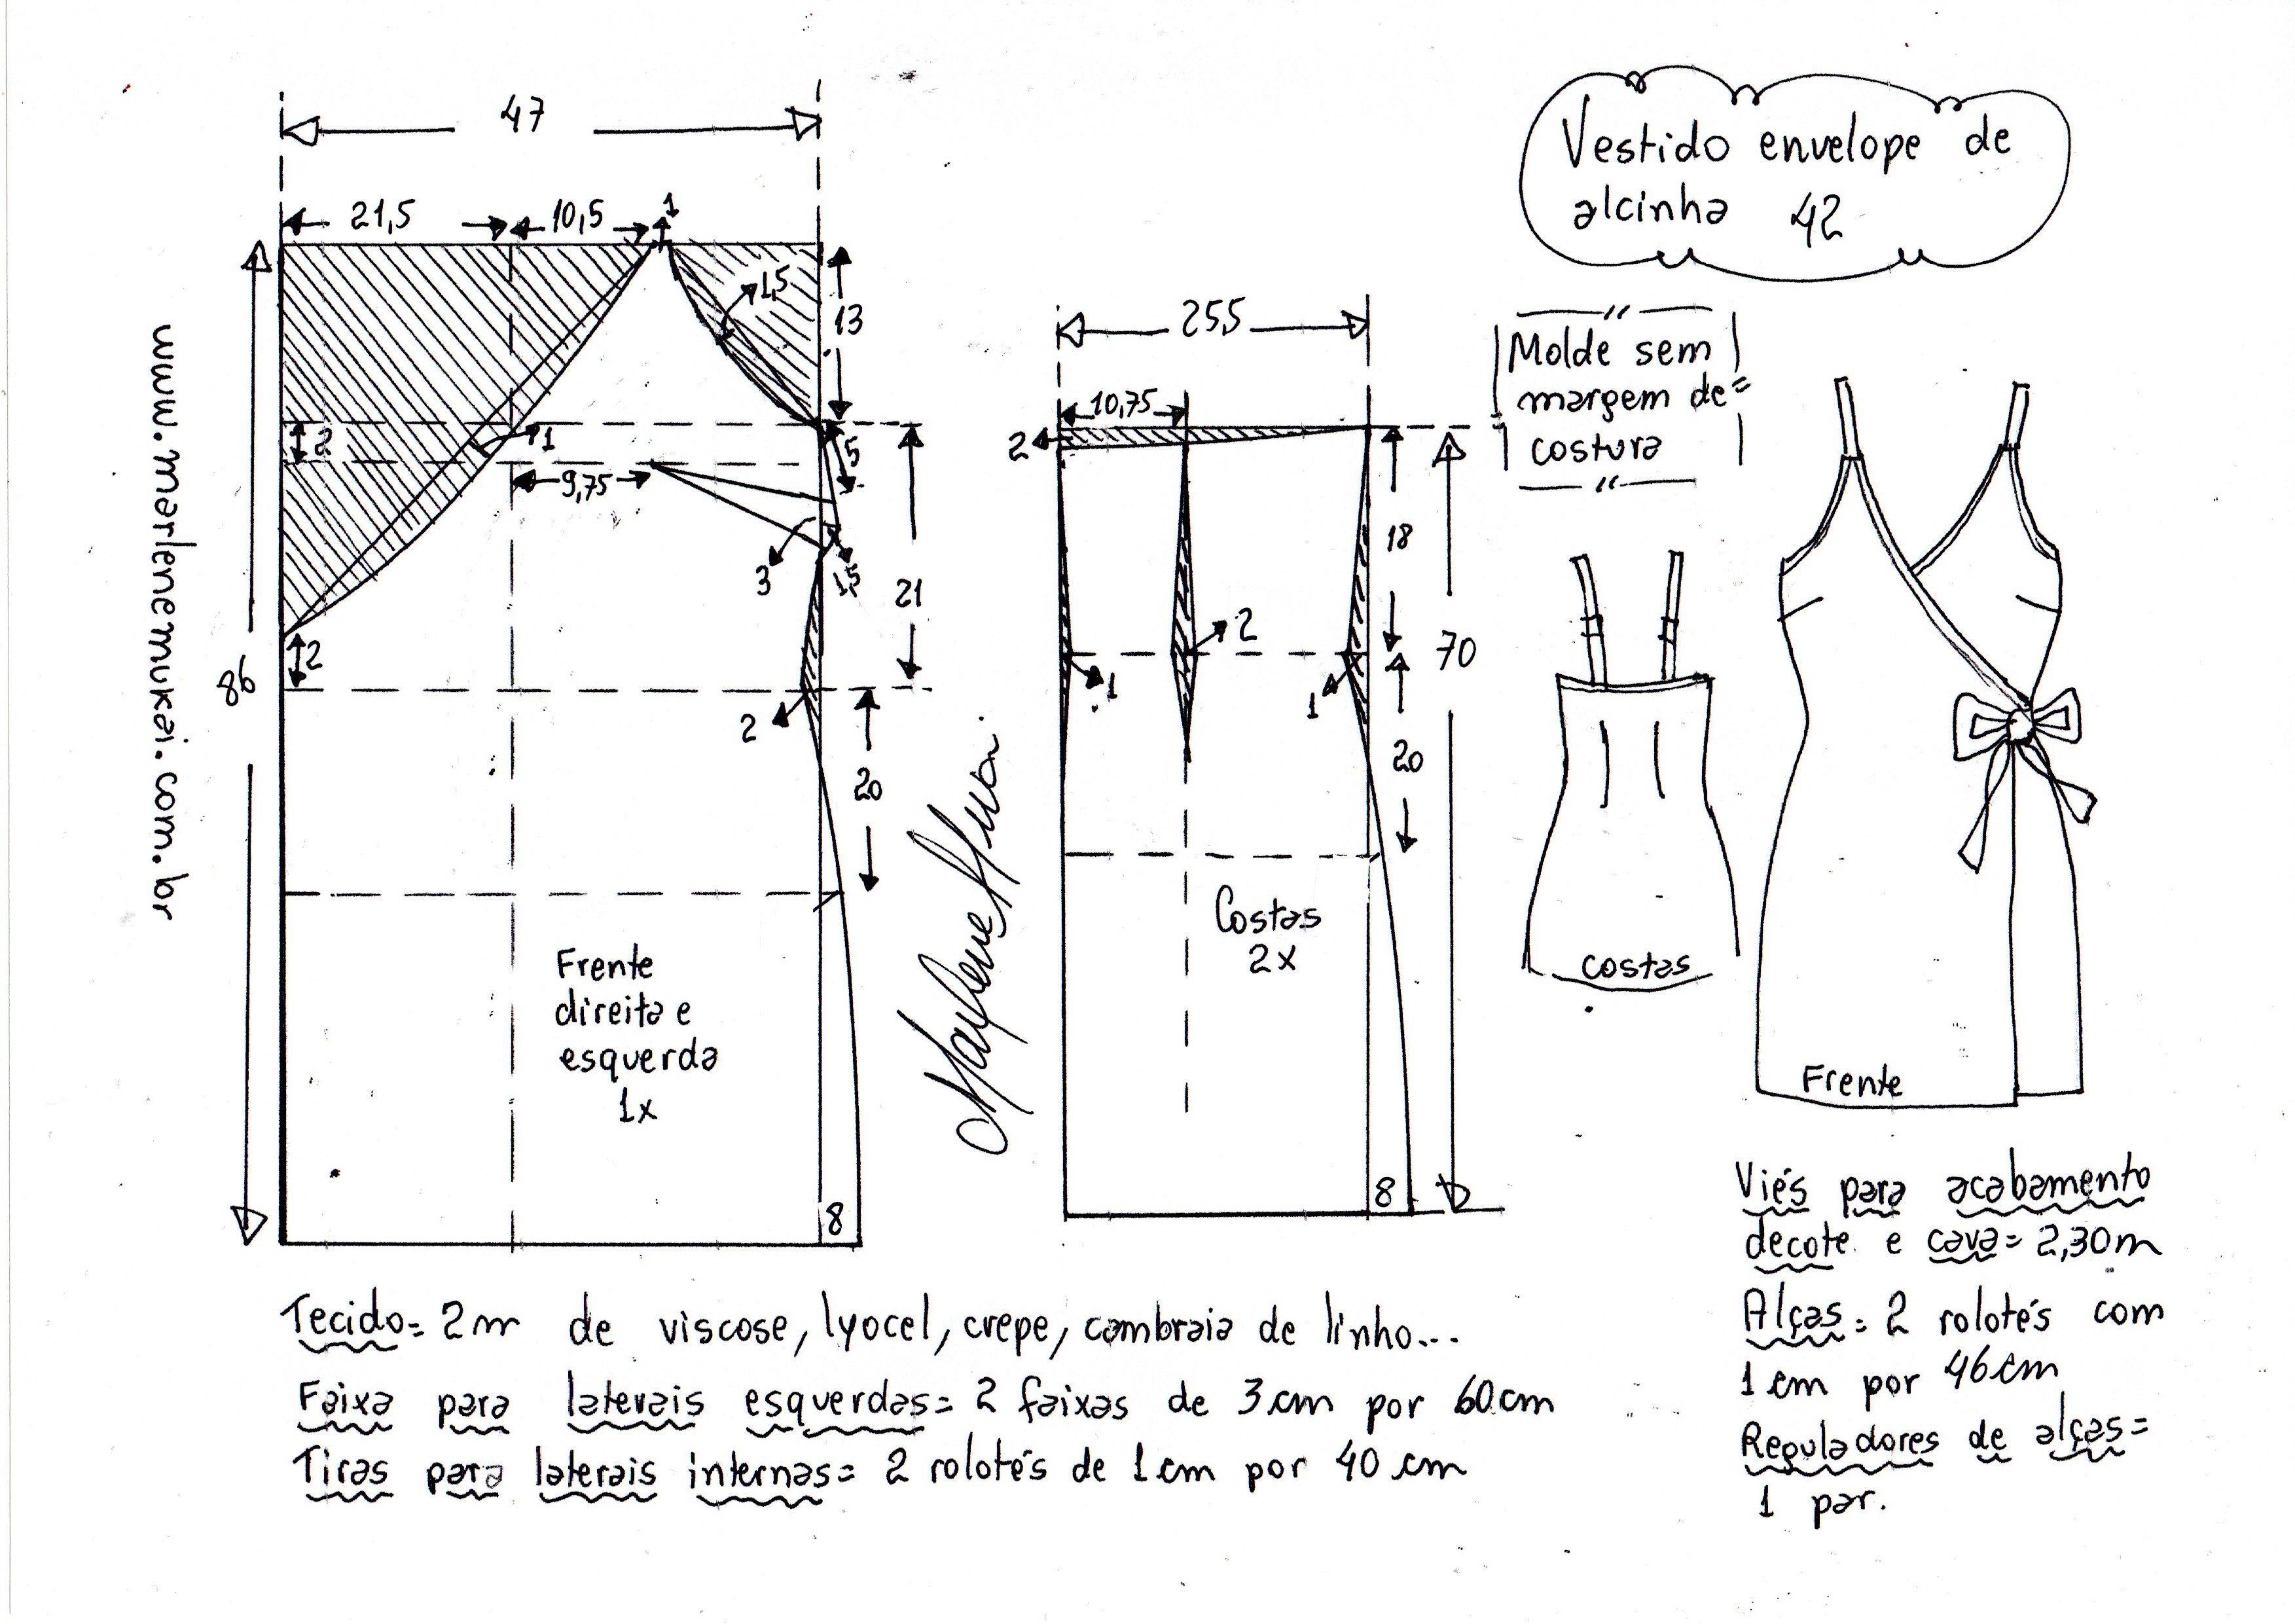 Vestido envelope de
alcinha 42
Molde sem
margem de
costura
www.marlenemukai.com.br
47
21,5
10,5
1
1,5
13
2
1
5
9,75
3
1,5
21
2
86
2
20
Frente
direita e
esquerda
1x
8
25,5
10,75
2
18
70
2
1
1
20
Costas
2x
8
costas
Frente
Tecido= 2m de viscose, lyocel, crepe, cambraia de linho...
Faixa para laterais esquerdas= 2 faixas de 3cm por 60cm
Tiras para laterais internas= 2 rolotés de 1cm por 40cm
Viés para acabamento
decote e cava= 2,30m
Alças= 2 rolotés com
1cm por 46cm
Reguladores de alças=
1 par.